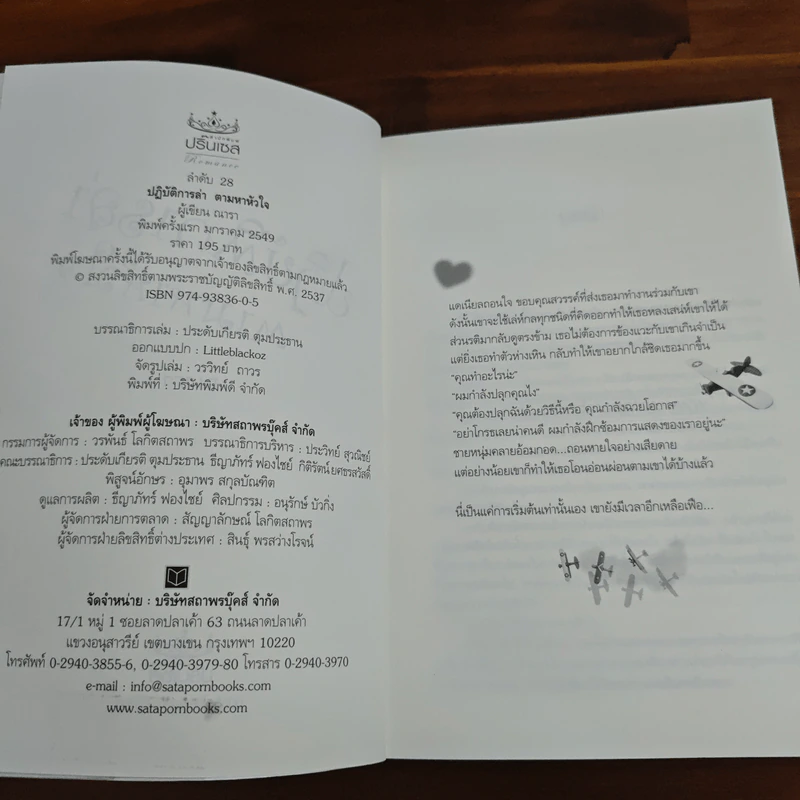 สำนักพิมพ์
ปริ๊นเซส
Romance
ลำดับ 28
ปฏิบัติการล่า ตามหาหัวใจ
ผู้เขียน ณารา
พิมพ์ครั้งแรก มกราคม 2549
ราคา 195 บาท
พิมพ์โฆษณาครั้งนี้ได้รับอนุญาตจากเจ้าของลิขสิทธิ์ตามกฎหมายแล้ว
© สงวนลิขสิทธิ์ตามพระราชบัญญัติลิขสิทธิ์ พ.ศ. 2537
ISBN 974-93836-0-5
บรรณาธิการเล่ม : ประดับเกียรติ ตุมประธาน
ออกแบบปก : Littleblackoz
จัดรูปเล่ม : วรวิทย์ ถาวร
พิมพ์ที่ : บริษัทพิมพ์ดี จำกัด
เจ้าของ ผู้พิมพ์ผู้โฆษณา : บริษัทสถาพรบุ๊คส์ จำกัด
กรรมการผู้จัดการ : วรพันธ์ โลกิตสถาพร บรรณาธิการบริหาร : ประวิทย์ สุวณิชย์
คณะบรรณาธิการ : ประดับเกียรติ ตุมประธาน ธีญาภัทร์ ฟองไชย์ กิติรัตน์ ยศธรสวัสดิ์
พิสูจน์อักษร : อุมาพร สกุลบัณฑิต
ดูแลการผลิต : ธีญาภัทร์ ฟองไชย์ ศิลปกรรม : อนุรักษ์ บัวกิ่ง
ผู้จัดการฝ่ายการตลาด : สัญญาลักษณ์ โลกิตสถาพร
ผู้จัดการฝ่ายลิขสิทธิ์ต่างประเทศ : สินธุ์ พรสว่างโรจน์
จัดจำหน่าย : บริษัทสถาพรบุ๊คส์ จำกัด
17/1 หมู่ 1 ซอยลาดปลาเค้า 63 ถนนลาดปลาเค้า
แขวงอนุสาวรีย์ เขตบางเขน กรุงเทพฯ 10220
โทรศัพท์ 0-2940-3855-6, 0-2940-3979-80 โทรสาร 0-2940-3970
e-mail : info@satapornbooks.com
www.satapornbooks.com
แดเนียลถอนใจ ขอบคุณสวรรค์ที่ส่งเธอมาทำงานร่วมกับเขา
ดังนั้นเขาจะใช้เล่ห์กลทุกชนิดที่คิดออกทำให้เธอหลงเสน่ห์เขาให้ได้
ส่วนรติมากลับดูตรงข้าม เธอไม่ต้องการข้องแวะกับเขาเกินจำเป็น
แต่ยิ่งเธอทำตัวห่างเหิน กลับทำให้เขาอยากใกล้ชิดเธอมากขึ้น
“คุณทำอะไรน่ะ”
“ผมกำลังปลุกคุณไง”
“คุณต้องปลุกฉันด้วยวิธีนี้หรือ คุณกำลังฉวยโอกาส”
“อย่าโกรธเลยน่าคนดี ผมกำลังฝึกซ้อมการแสดงของเราอยู่นะ”
ชายหนุ่มคลายอ้อมกอด...ถอนหายใจอย่างเสียดาย
แต่อย่างน้อยเขาก็ทำให้เธอโอนอ่อนผ่อนตามเขาได้บ้างแล้ว
นี่เป็นแค่การเริ่มต้นเท่านั้นเอง เขายังมีเวลาอีกเหลือเฟือ...